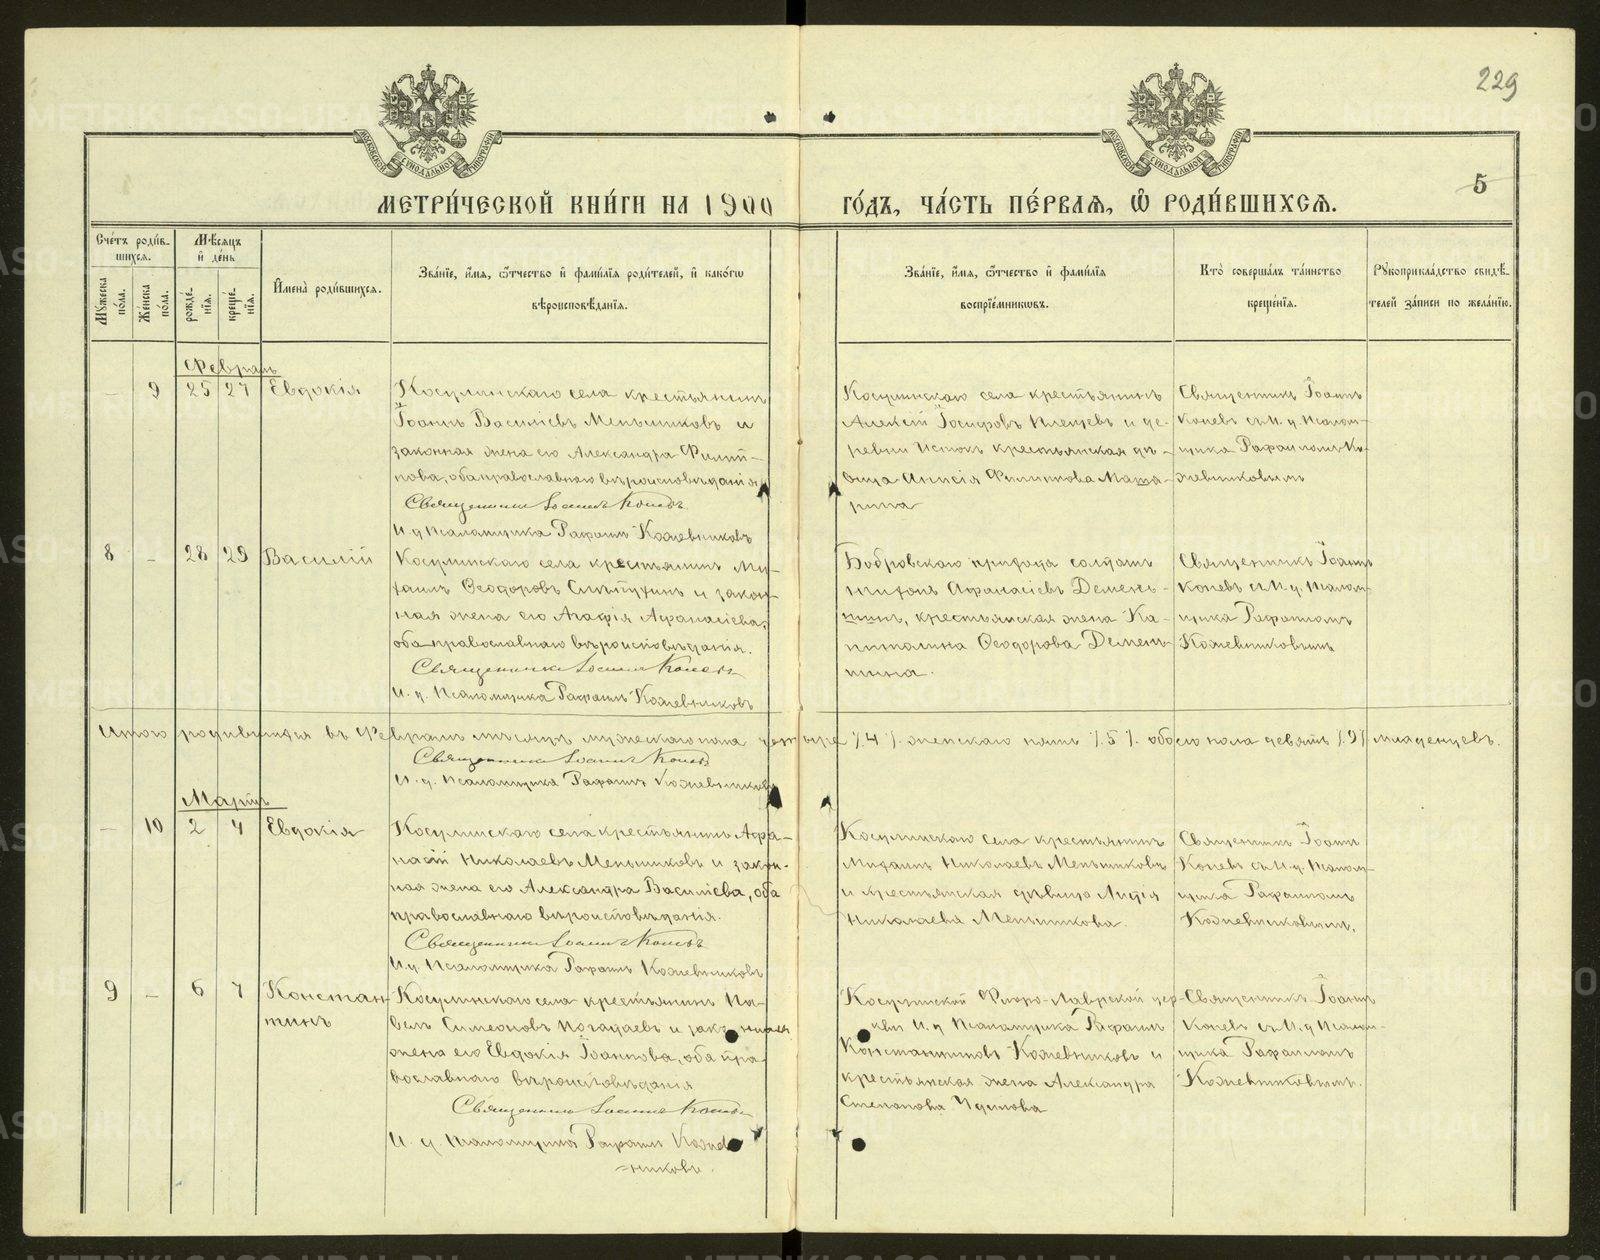 229
5
МЕТРИ́ЧЕСКОЙ КНИ́ГИ НА 1900 ГО́ДЪ, ЧА́СТЬ ПЕ́РВАЯ, Ѡ҆ РОДИ́ВШИХСЯ.
Сче́тъ роди́в-
шихся.
Мꙋ́жеска по́ла.
Же́нска по́ла.
Мѣ́сяцъ и҆ де́нь
рожде́-
нїя.
креще́-
нїя.
И҆мена̀ роди́вшихся.
Зва́нїе, и҆́мя, ѻ҆́тчество и҆ фами́лїя роди́телей, и҆ како́гѡ
вѣроисповѣ́данїя.
Зва́нїе, и҆́мя, ѻ҆́тчество и҆ фами́лїя
воспрїе́мникѡвъ.
Кто̀ соверша́лъ та́инство
креще́нїя.
Рꙋкоприкла́дство свидѣ́-
телей за́писи по жела́нїю.
Февраль
— 9 25 27 Евдокія
Косулинскаго села крестьянинъ
Іоаннъ Василіевъ Меньшиковъ и
законная жена его Александра Филип-
пова, оба православнаго вѣроисповѣданія
Священникъ Іоаннъ Коневъ
И. д. Псаломщика Рафаилъ Кожевниковъ
Косулинскаго села крестьянинъ
Алексій Іосифовъ Плещевъ и де-
ревни Истокъ крестьянская дѣ-
вица Анисія Филиппова
Священникъ Іоаннъ
Коневъ съ И. д. Псалом-
щика Рафаиломъ Ко-
жевниковымъ
8 — 28 29 Василій
Косулинскаго села крестьянинъ Ми-
хаилъ Ѳеодоровъ и закон-
ная жена его Агафія Афанасіева,
оба православнаго вѣроисповѣданія.
Священникъ Іоаннъ Коневъ
И. д. Псаломщика Рафаилъ Кожевниковъ
Бобровскаго прихода солдатъ
Афанасіевъ Демень-
шинъ, крестьянская жена Ка-
питалина Ѳеодорова Демень-
шина.
Священникъ Іоаннъ
Коневъ съ И. д. Псалом-
щика Рафаиломъ
Кожевниковымъ
Итого родившихся въ Февралѣ мѣсяцѣ мужескаго пола четыре /.4/. женскаго пять /.5/. обоего пола девять /.9/. младенцевъ.
Священникъ Іоаннъ Коневъ
И. д. Псаломщика Рафаилъ Кожевниковъ
Мартъ
— 10 2 4 Евдокія
Косулинскаго села крестьянинъ Афа-
насій Николаевъ Меньшиковъ и закон-
ная жена его Александра Василіева, оба
православнаго вѣроисповѣданія.
Священникъ Іоаннъ Коневъ
И. д. Псаломщика Рафаилъ Кожевниковъ
Косулинскаго села крестьянинъ
Михаилъ Николаевъ Меньшиковъ
и крестьянская дѣвица Лидія
Николаева Меньшикова.
Священникъ Іоаннъ
Коневъ съ И. д. Псалом-
щика Рафаиломъ
Кожевниковымъ.
9 — 6 7 Констан-
тинъ
Косулинскаго села крестьянинъ Па-
велъ Симеоновъ и законная
жена его Евдокія Іоаннова, оба пра-
вославнаго вѣроисповѣданія
Священникъ Іоаннъ Коневъ
И. д. Псаломщика Рафаилъ Кожев-
никовъ.
Косулинской Флоро-Лаврской цер-
кви И. д. Псаломщика Рафаилъ
Константиновъ Кожевниковъ и
крестьянская жена Александра
Степанова
Священникъ Іоаннъ
Коневъ съ И. д. Псалом-
щика Рафаиломъ
Кожевниковымъ.
METRIKI.GASO-URAL.RU